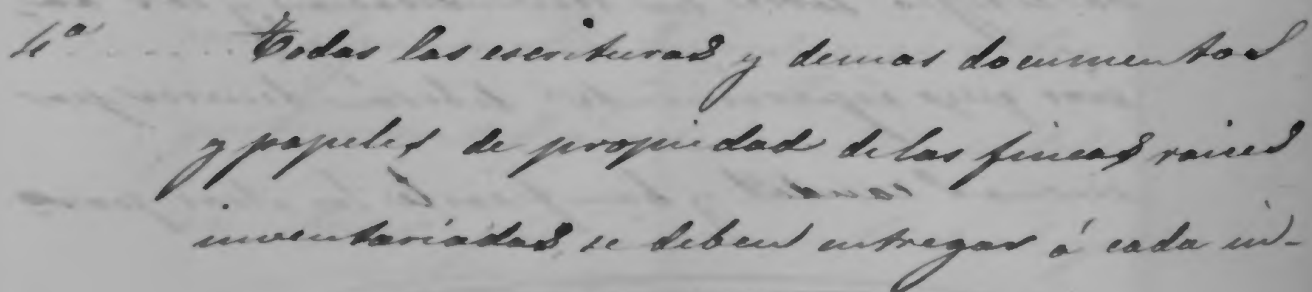 4ª Todas las escrituras y demas documentos
y papeles de propiedad de las fincas raices
inventariadas, se deben entregar á cada in-